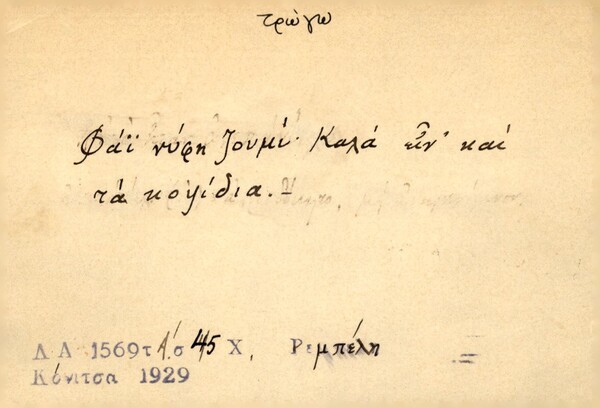 τρώγω
Φάϊ νύφη ζουμί· Καλά εἶν' καί
τά κοψίδια.
Λ Α 1569 τ Α' σ 45 Χ. Ρεμπέλη
Κόνιτσα 1929